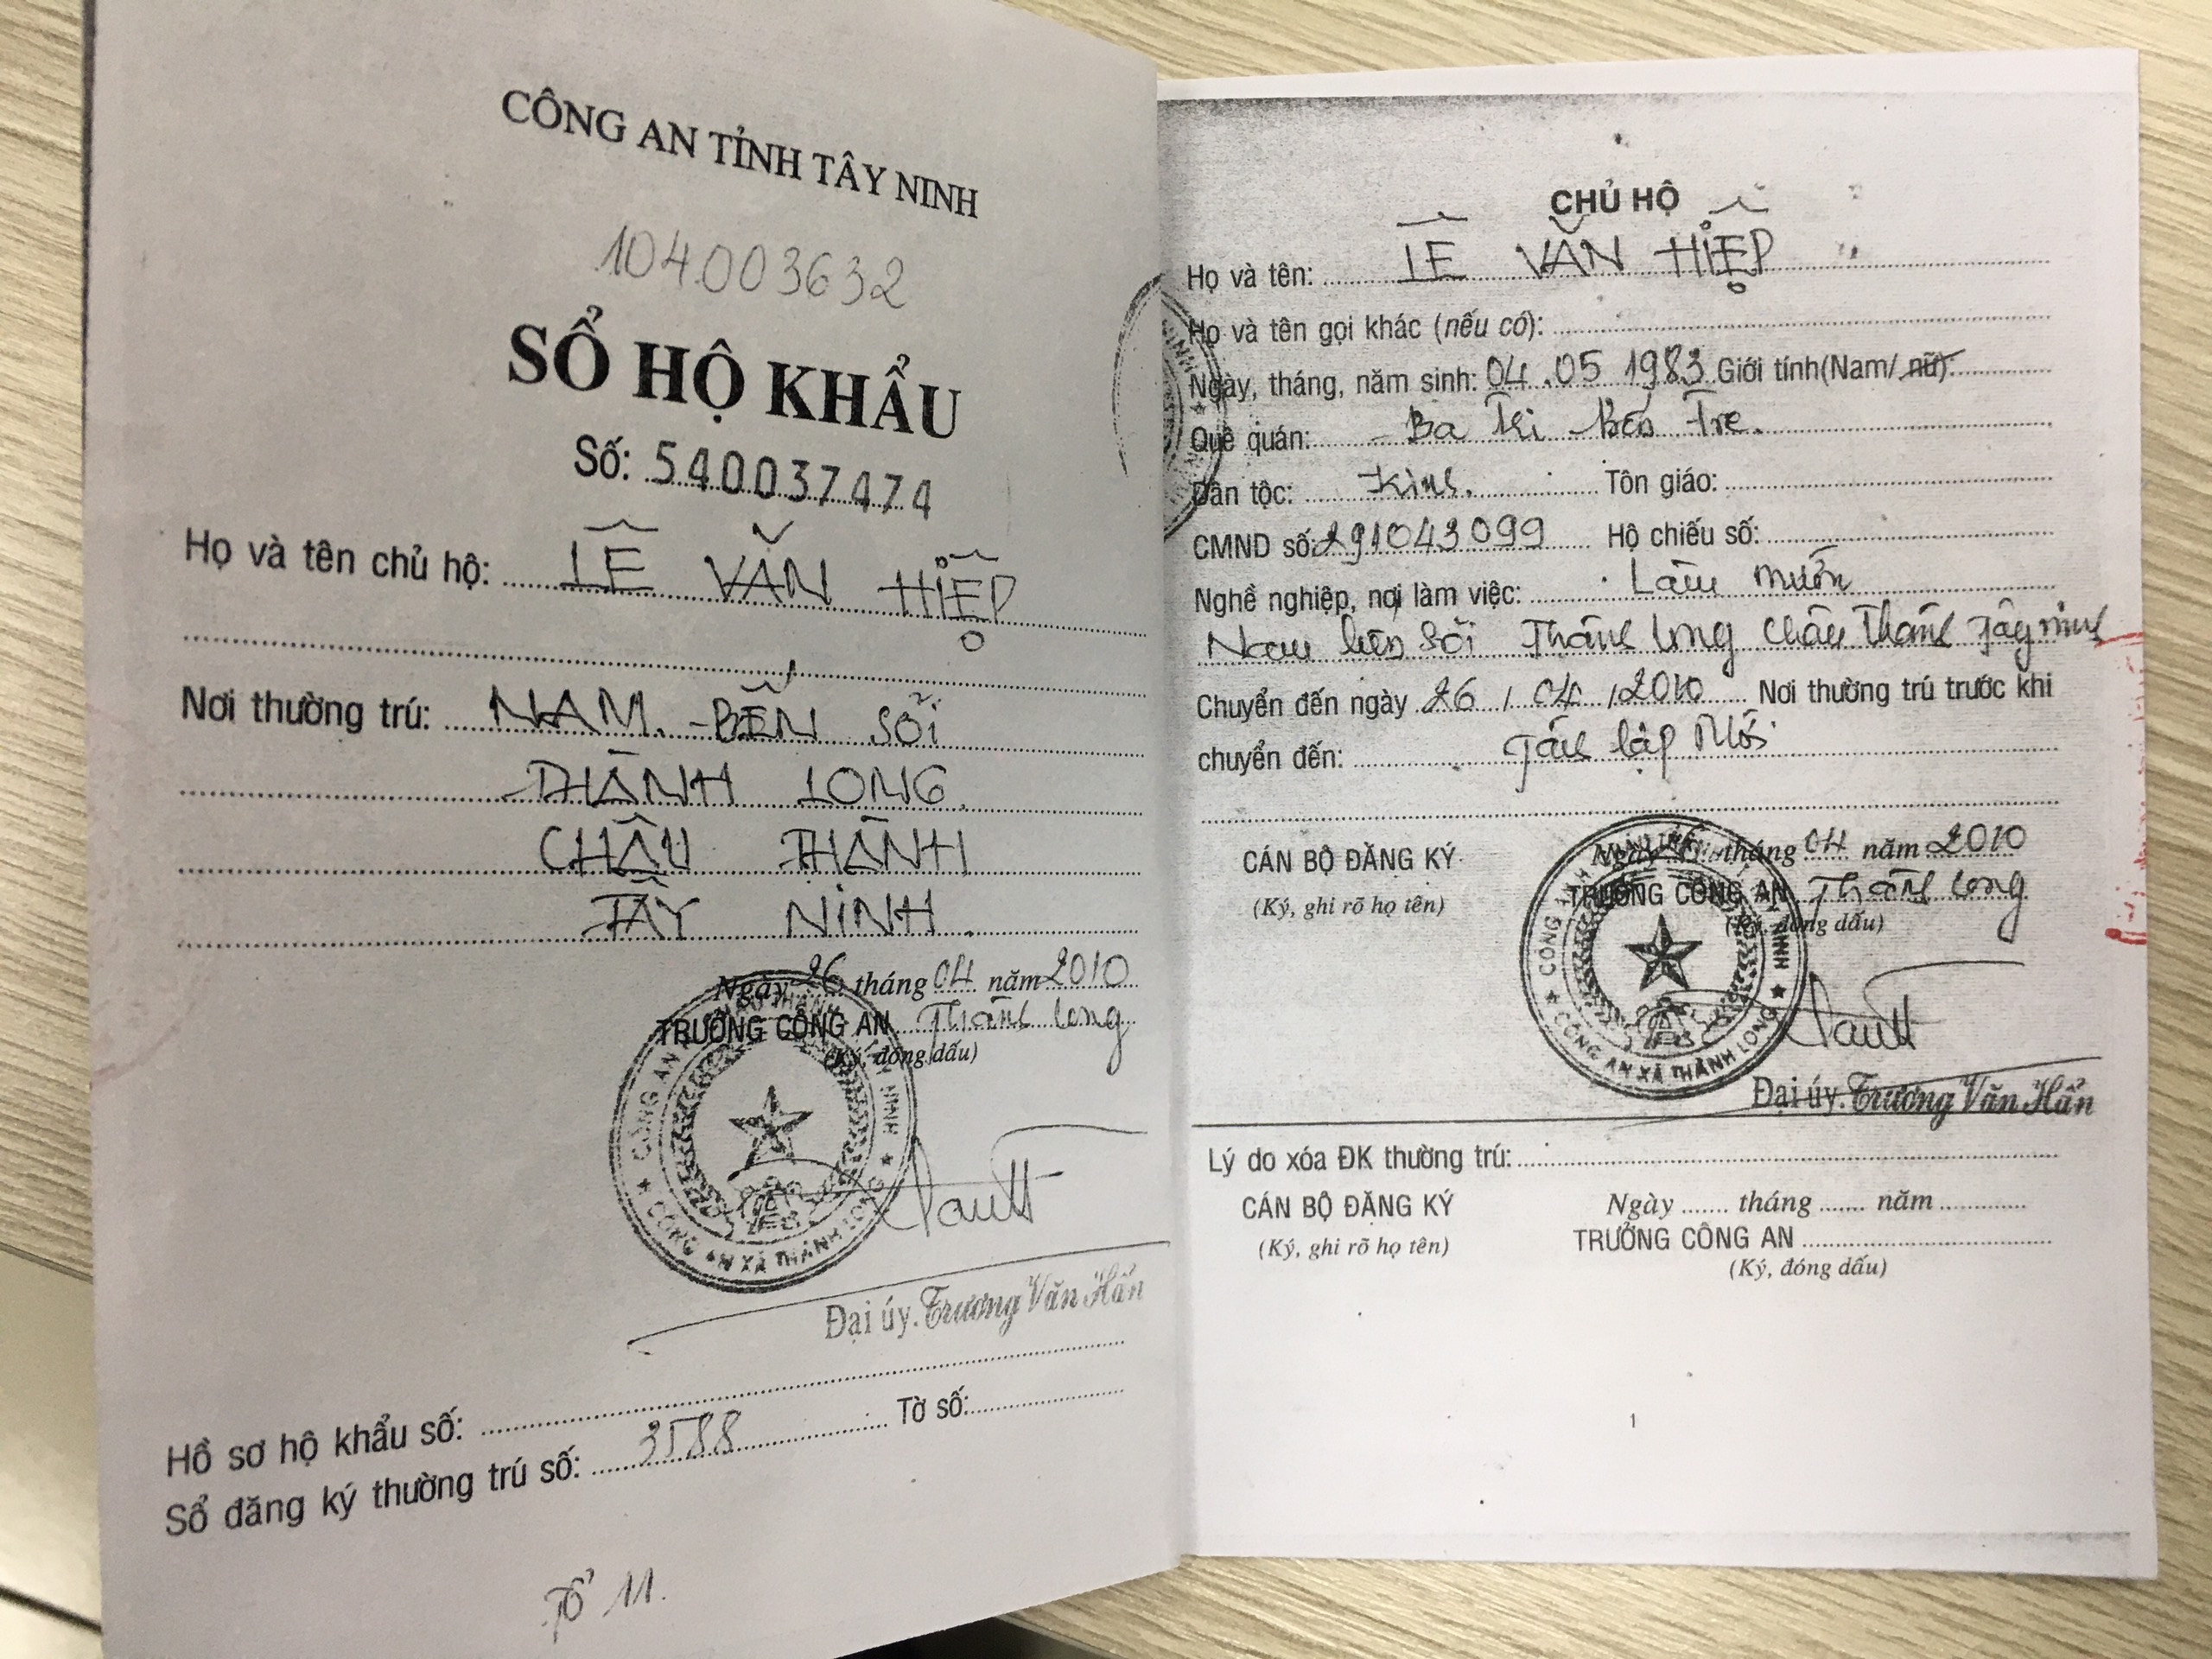 CÔNG AN TỈNH TÂY NINH
104.003632
SỔ HỘ KHẨU
Số: 540037474
Họ và tên chủ hộ: LÊ VĂN HIỆP
Nơi thường trú: NAM. BẾN SỎI
THÀNH LONG.
CHÂU THÀNH
TÂY NINH.
Ngày 26 tháng 04 năm 2010
TRƯỞNG CÔNG AN Thành Long
(Ký, đóng dấu)
CÔNG AN XÃ THÀNH LONG
Đại úy. Trương Văn Hẩn
Hồ sơ hộ khẩu số:
Sổ đăng ký thường trú số: 3588 Tờ số:
Tổ 11.
CHỦ HỘ
Họ và tên: LÊ VĂN HIỆP
Họ và tên gọi khác (nếu có):
Ngày, tháng, năm sinh: 04.05 1983 Giới tính(Nam/ nữ):
Quê quán: Ba Tri Bến Tre.
Dân tộc: Kinh. Tôn giáo:
CMND số: 291043099 Hộ chiếu số:
Nghề nghiệp, nơi làm việc: Làm mướn
Nam bến Sỏi Thành Long Châu Thành Tây ninh
Chuyển đến ngày 26 / 04 / 2010 Nơi thường trú trước khi
chuyển đến: Tân lập Mới
CÁN BỘ ĐĂNG KÝ
(Ký, ghi rõ họ tên)
Ngày 26 tháng 04 năm 2010
TRƯỞNG CÔNG AN Thành Long
(Ký, đóng dấu)
CÔNG AN XÃ THÀNH LONG
Đại úy. Trương Văn Hẩn
Lý do xóa ĐK thường trú:
CÁN BỘ ĐĂNG KÝ
(Ký, ghi rõ họ tên)
Ngày ....... tháng ....... năm .............
TRƯỞNG CÔNG AN
(Ký, đóng dấu)
1